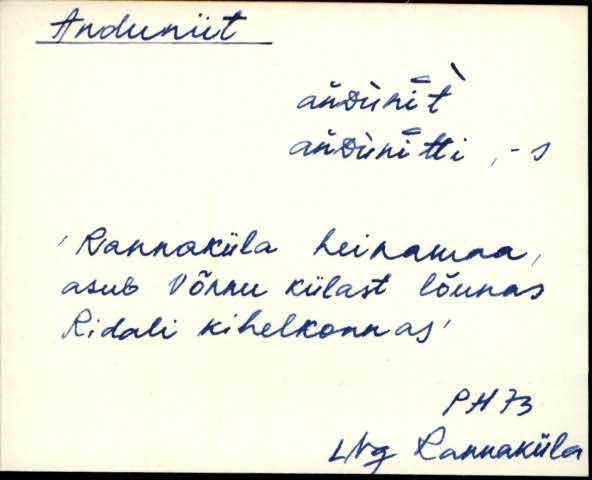 Anduniit
añDùni̅t̀
añDùni̅tti, -s
'Rannaküla heinamaa,
asub Võnnu külast lõunas
Ridali kihelkonnas'
PH 73
LNg Rannaküla